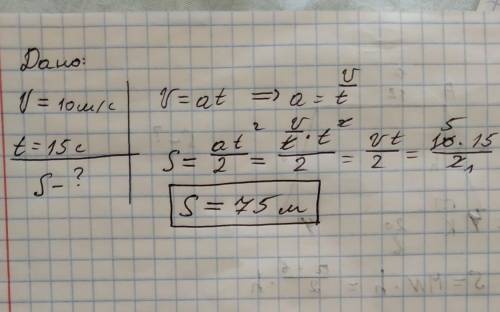 Дано:
V = 10 м/с
t = 15 с
S - ?
V = at ⟹ a = V/t
S = at²/2 = (V/t · t²)/2 = Vt/2 = 10 · 15/2 5 1
S = 75 м